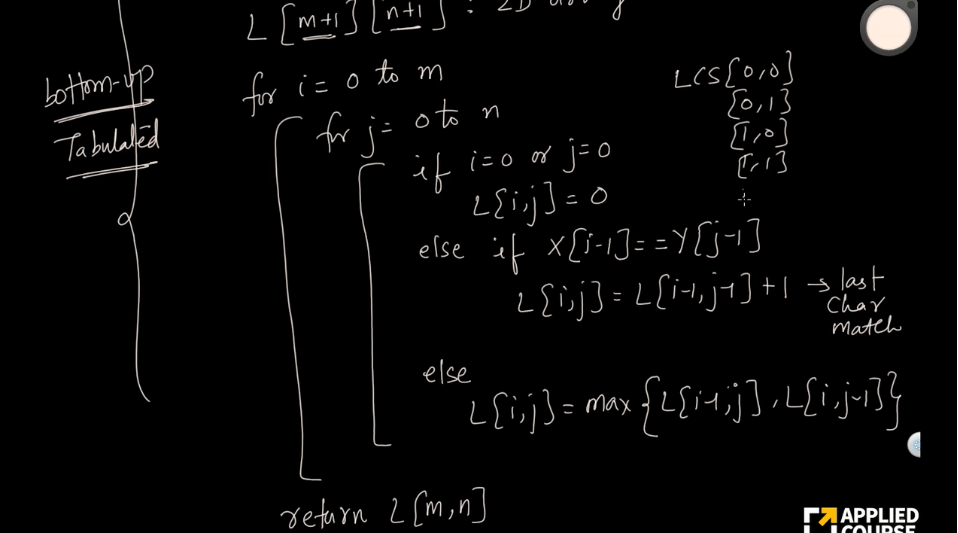 L[m+1][n+1] : 2D array
bottom-up
Tabulated
for i = 0 to m
for j = 0 to n
if i=0 or j=0
L[i,j] = 0
else if X[i-1] == Y[j-1]
L[i,j] = L[i-1,j-1] + 1 → last
char
match
else
L[i,j] = max {L[i-1,j], L[i,j-1]}
return L[m,n]
LCS[0,0]
[0,1]
[1,0]
[1,1]
APPLIED
COURSE